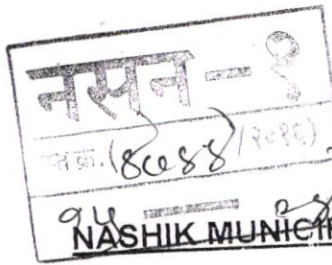 नसन - १
दस्त क्र. (४७४४/२०१६)
१५
NASHIK MUNICIP